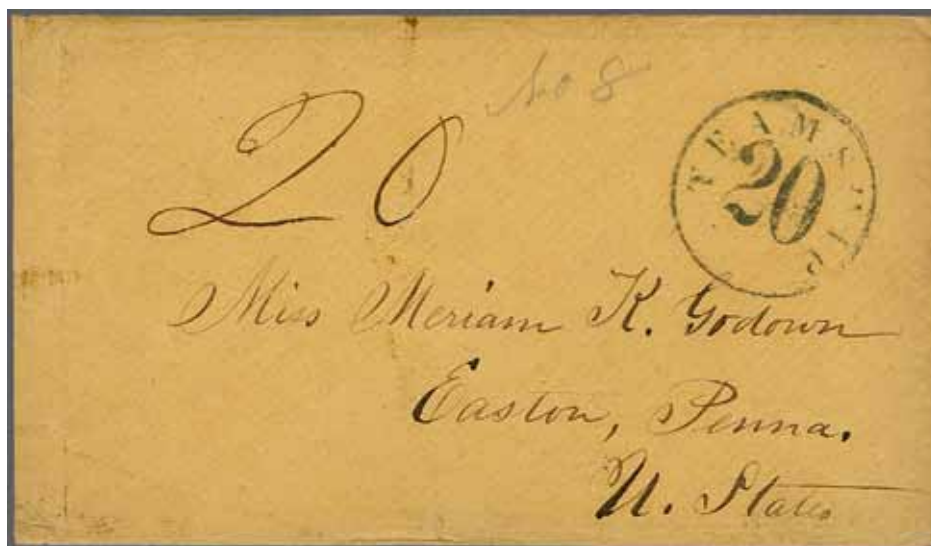 No 8
20
STEAMSHIP
20
Miss Meriam K. Godown
Easton, Penna.
U. States